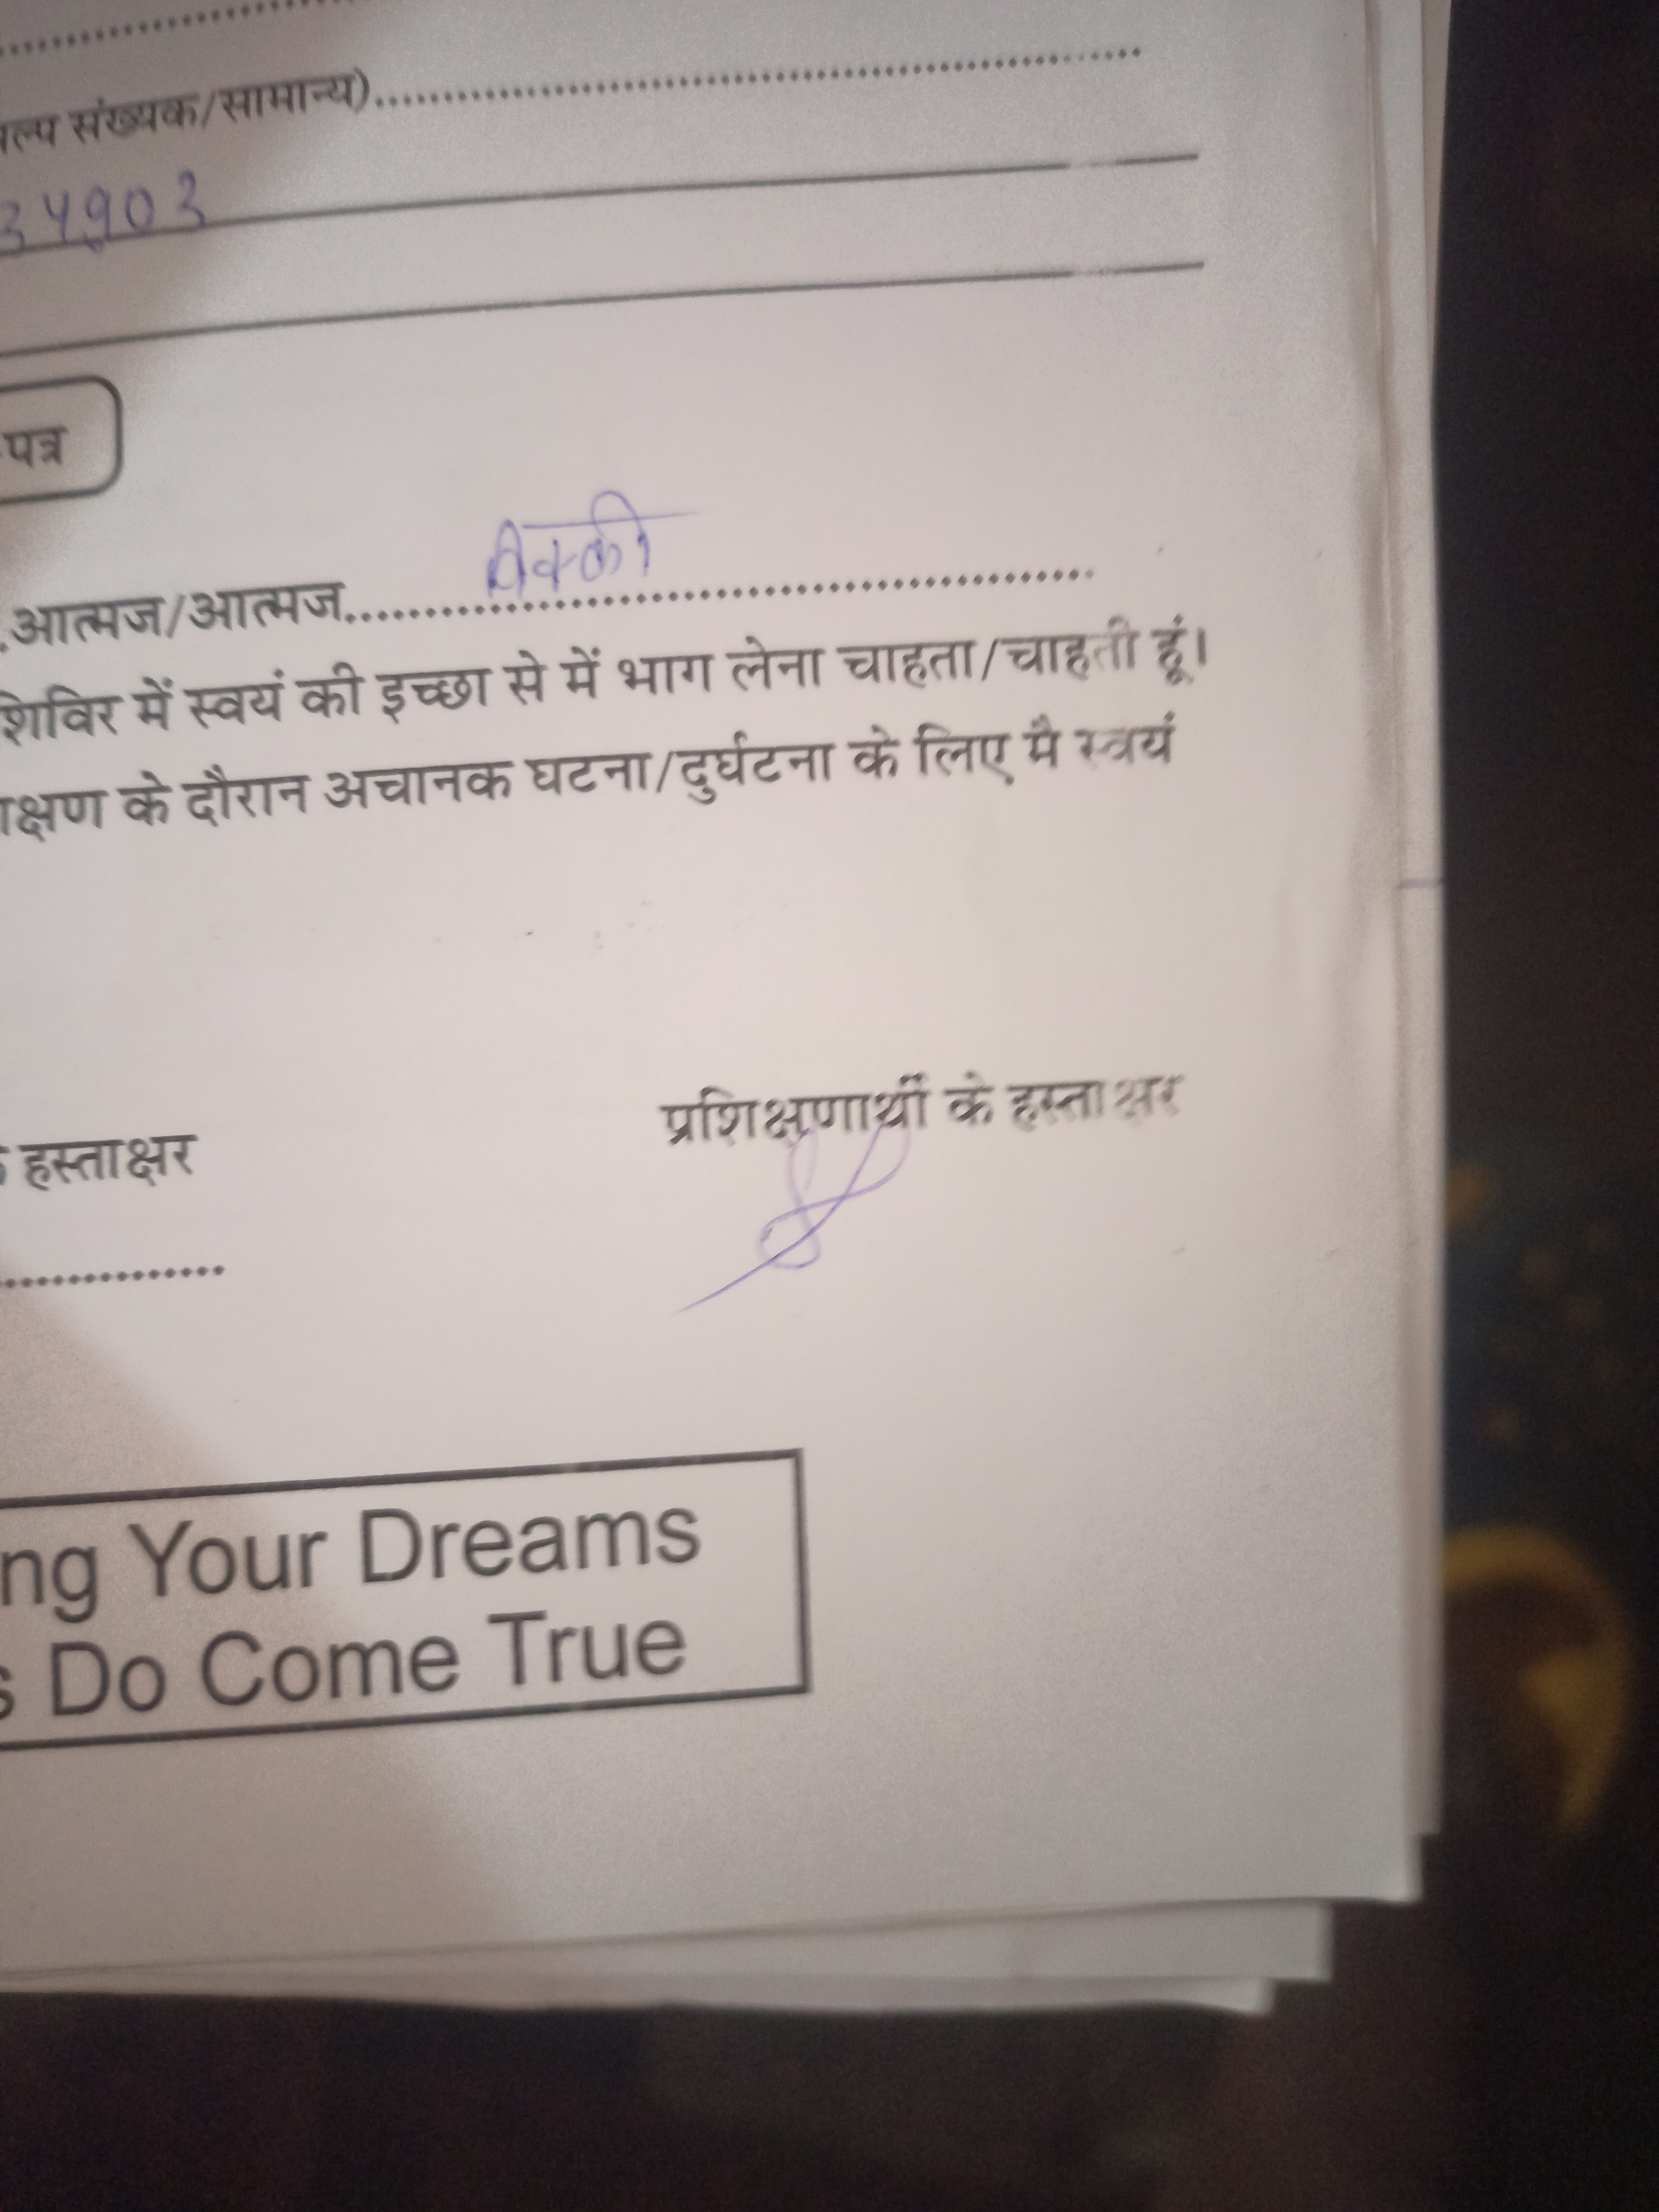 ल्प संख्यक/सामान्य)....................
34903
पत्र
.आत्मज/आत्मज.... विक्की ....................
शिविर में स्वयं की इच्छा से में भाग लेना चाहता/चाहती हूं।
क्षण के दौरान अचानक घटना/दुर्घटना के लिए मै स्वयं
प्रशिक्षणार्थी के हस्ताक्षर
हस्ताक्षर
..............
ng Your Dreams
s Do Come True